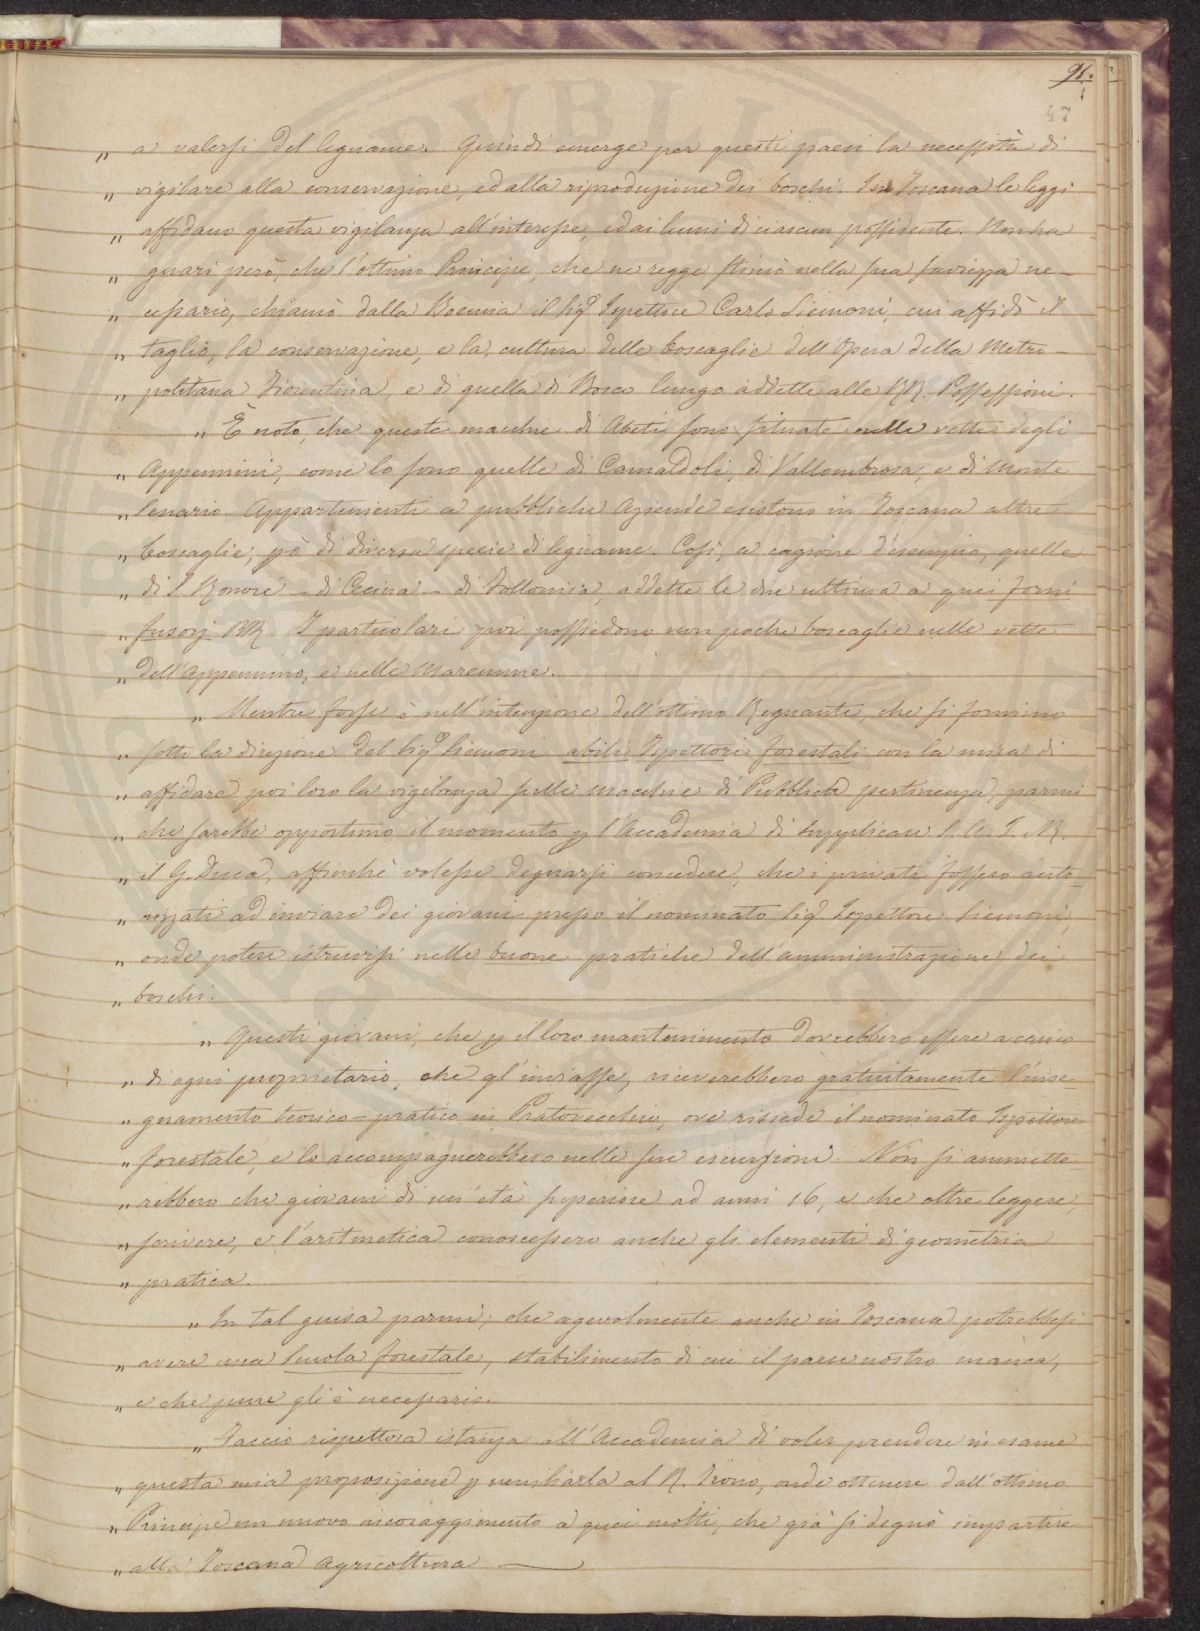 91.
47
„ a valersi del legname. Quindi emerge per questi paesi la necessità di
„ vigilare alla conservazione, ed alla riproduzione dei boschi. In Toscana le leggi
„ affidano questa vigilanza all'interesse, ed ai lumi di ciascun possidente. Non ha
„ guari però, che l'ottimo Principe, che ne regge stimò nella sua saviezza ne-
„ cessario, chiamò dalla Boemia il Sigr Ispettore Carlo Siemoni, cui affidò il
„ taglio, la conservazione, e la cultura delle boscaglie dell'Opera della Metro-
„ politana Fiorentina, e di quella di Bosco lungo addette alle RR. Possessioni.
„ È noto, che queste macchie di Abeti sono situate nelle vette degli
„ Appennini, come lo sono quelle di Camaldoli, di Vallombrosa, e di Monte
„ Senario. Appartenenti a pubbliche Aziende esistono in Toscana altre
„ boscaglie, pò di diversa specie di legname. Così, a cagione d'esempio, quelle
„ di S. Ronore - di Cecina - di Follonica, addette le due ultime a quei forni
„ fusorj RR. I particolari poi possiedono non poche boscaglie nelle vette
„ dell'Appennino, e nelle Maremme.
„ Mentre forse è nell'intenzione dell'ottimo Regnante, che si formino
„ sotto la direzione del Sigr Siemoni abili Ispettori forestali con la mira di
„ affidare poi loro la vigilanza sulle macchie di Pubblica pertinenza, parmi
„ che sarebbe opportuno il momento p l'Accademia di supplicare S. A. I. R.
„ il G. Duca, affinchè volesse degnarsi concedere, che i privati fossero auto-
„ rizzati ad inviare dei giovani presso il nominato Sigr Ispettore Siemoni,
„ onde potere istruirsi nelle buone pratiche dell'amministrazione dei
„ boschi.
„ Questi giovani, che p il loro mantenimento dovrebbero essere a carico
„ di ogni proprietario, che gl'inviasse, riceverebbero gratuitamente l'inse
„ gnamento teorico=pratico in Pratovecchio, ove risiede il nominato Ispettore
„ forestale, e lo accompagnerebbero nelle sue escursioni. Non si ammette
„ rebbero che giovani di un'età superiore ad anni 16, e che oltre leggere,
„ scrivere, e l'aritmetica conoscessero anche gli elementi di geometria
„ pratica.
„ In tal guisa parmi, che agevolmente anche in Toscana potrebbesi
„ avere una Scuola forestale, stabilimento di cui il paese nostro manca,
„ e che pure gli è necessario.
„ Faccio rispettosa istanza all'Accademia di voler prendere in esame
„ questa mia proposizione p umiliarla al R. Trono, onde ottenere dall'ottimo
„ Principe un nuovo incoraggimento a quei molti, che già si degnò impartire
„ alla Toscana Agricoltura